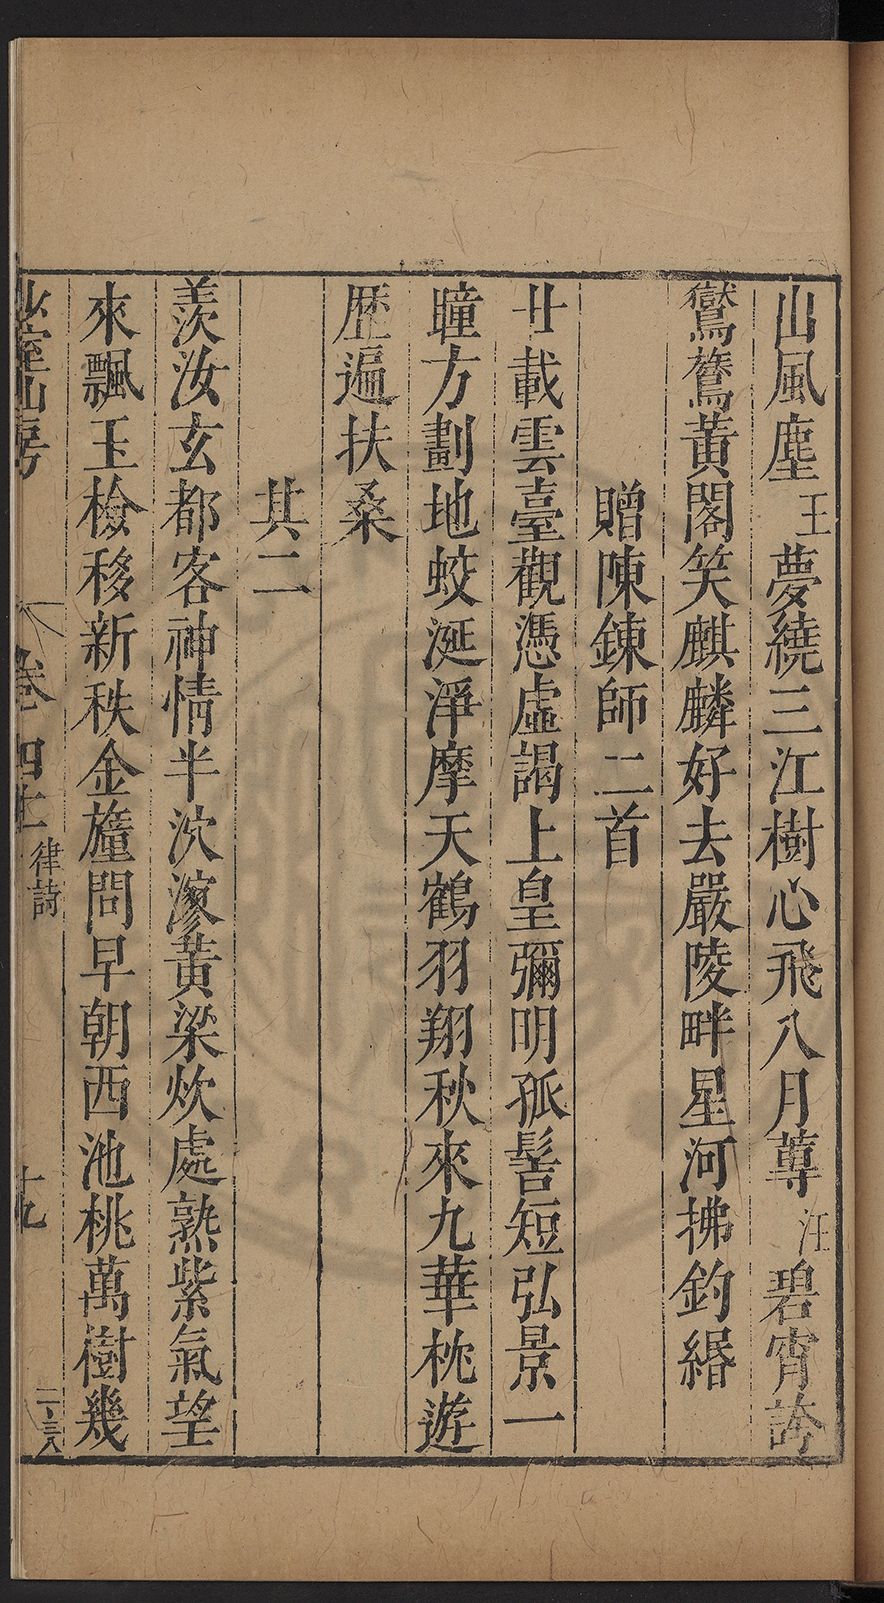 山風塵王夢繞三江樹心飛八月蓴汪碧宵誇
鸑鷟黃閣笑麒麟好去嚴陵畔星河拂釣緡
贈陳鍊師二首
廿載雲臺觀憑虛謁上皇彌明孤髻短弘景一
瞳方劃地蛟涎淨摩天鶴羽翔秋來九華枕遊
歷遍扶桑
其二
羨汝玄都客神情半泬漻黃梁炊處熟紫氣望
來飄玉檢移新秩金籙問早朝西池桃萬樹幾
少室山房 卷四十 律詩 十九 二三八